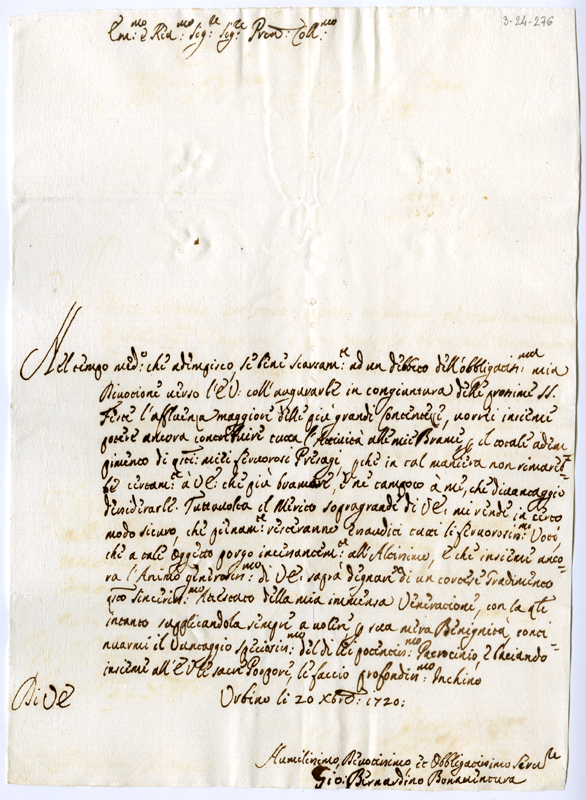 3-24-276
Em:mo e Rev:mo Sig:re Sig:re Pron: Coll:mo
Nel tempo med:o che adempisco, se bene scarsam:te ad un debbito dell'obbligatiss:ma mia
Divozione verso l'E.V. coll'augurarle in congiuntura delle prossime SS.
Feste l'affluenza maggiore delle più grandi Contentezze, vorrei insieme
potere ancora contribuire tutta l'Attività alle mie Brame, p il totale adem
pimento di q̃sti miei fervorosi Presagi, p̃che in tal maniera non rimarreb
be certam:te à V.E. che più bramare, e ne tampoco à me, che di vantaggio
desiderarle. Tuttavolta il Merito sopragrande di V.E. mi rende in certo
modo sicuro, che pienam:te resteranno esauditi tutti li fervorosiss:mi Voti,
che a tale oggetto porgo incessantem:te all'Altissimo, e che insieme anco-
ra l'Animo generosiss:mo di V.E. saprà degnare di un cortese Gradimento
q̃sto sinceriss:mo Attestato della mia immensa Venerazione, con la q̃le
intanto supplicandola sempre a volere p sua mera Benignità conti
nuarmi il Vantaggio speciosiss:mo del di lei potentiss:mo Patrocinio, e baciando
insieme all'E.V. le sacre Porpore, le faccio profondiss:mo Inchino
Di V.E. Urbino li 20 Xbre: 1720:
Humilissimo, Divotissimo et Obbligatissimo Serv:re
Gio: Bernardino Bonaventura